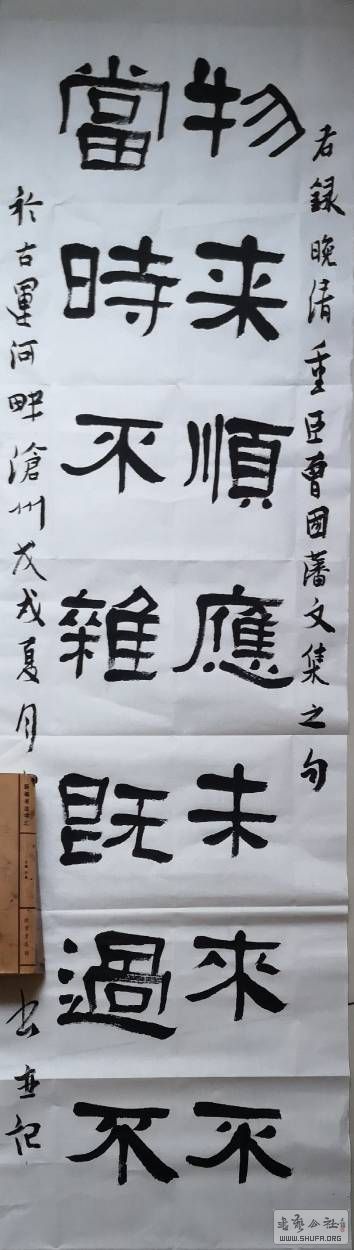 右録晚清重臣曹国藩文集之句
物来順應未來不
當時不雜既過不
於古運河畔滄州戊戌夏月
记
書藝公社
WWW.SHUFA.ORG